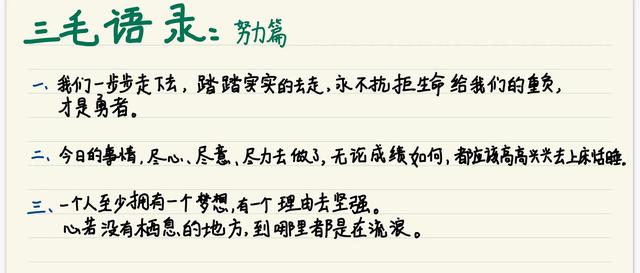 三毛语录：努力篇
一、我们一步步走下去，踏踏实实的去走，永不抗拒生命给我们的重负，
才是勇者。
二、今日的事情，尽心、尽意、尽力去做了，无论成绩如何，都应该高高兴兴去上床恬睡。
三、一个人至少拥有一个梦想，有一个理由去坚强。
心若没有栖息的地方，到哪里都是在流浪。